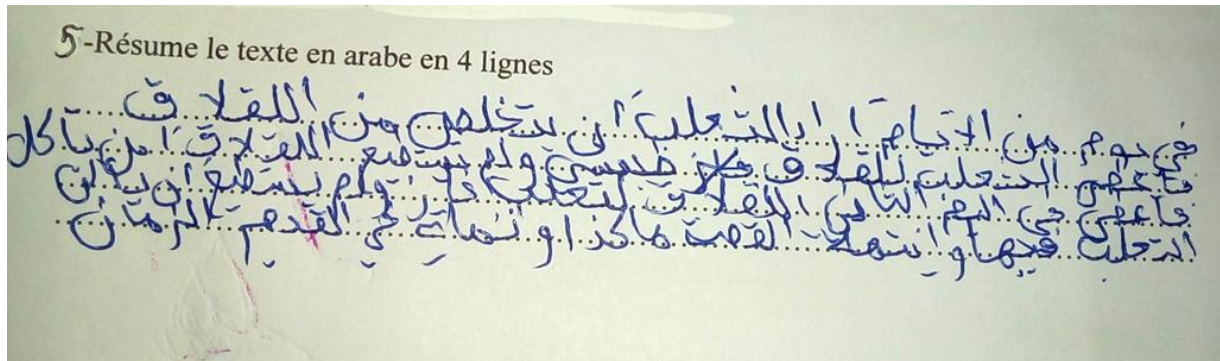 5-Résume le texte en arabe en 4 lignes
في يوم من الايام ارا الثعلب ان يتخلص من اللقلاق
فاعطى الثعلب للقلاق ولم يستطع اللقلاق ان ياكل
فاعطى في اليوم التالي اللقلاق لتعلب ولم يستطع ان ياكل
التعلب فيها وانتهت القصت هاكذا و في القديم الزمان